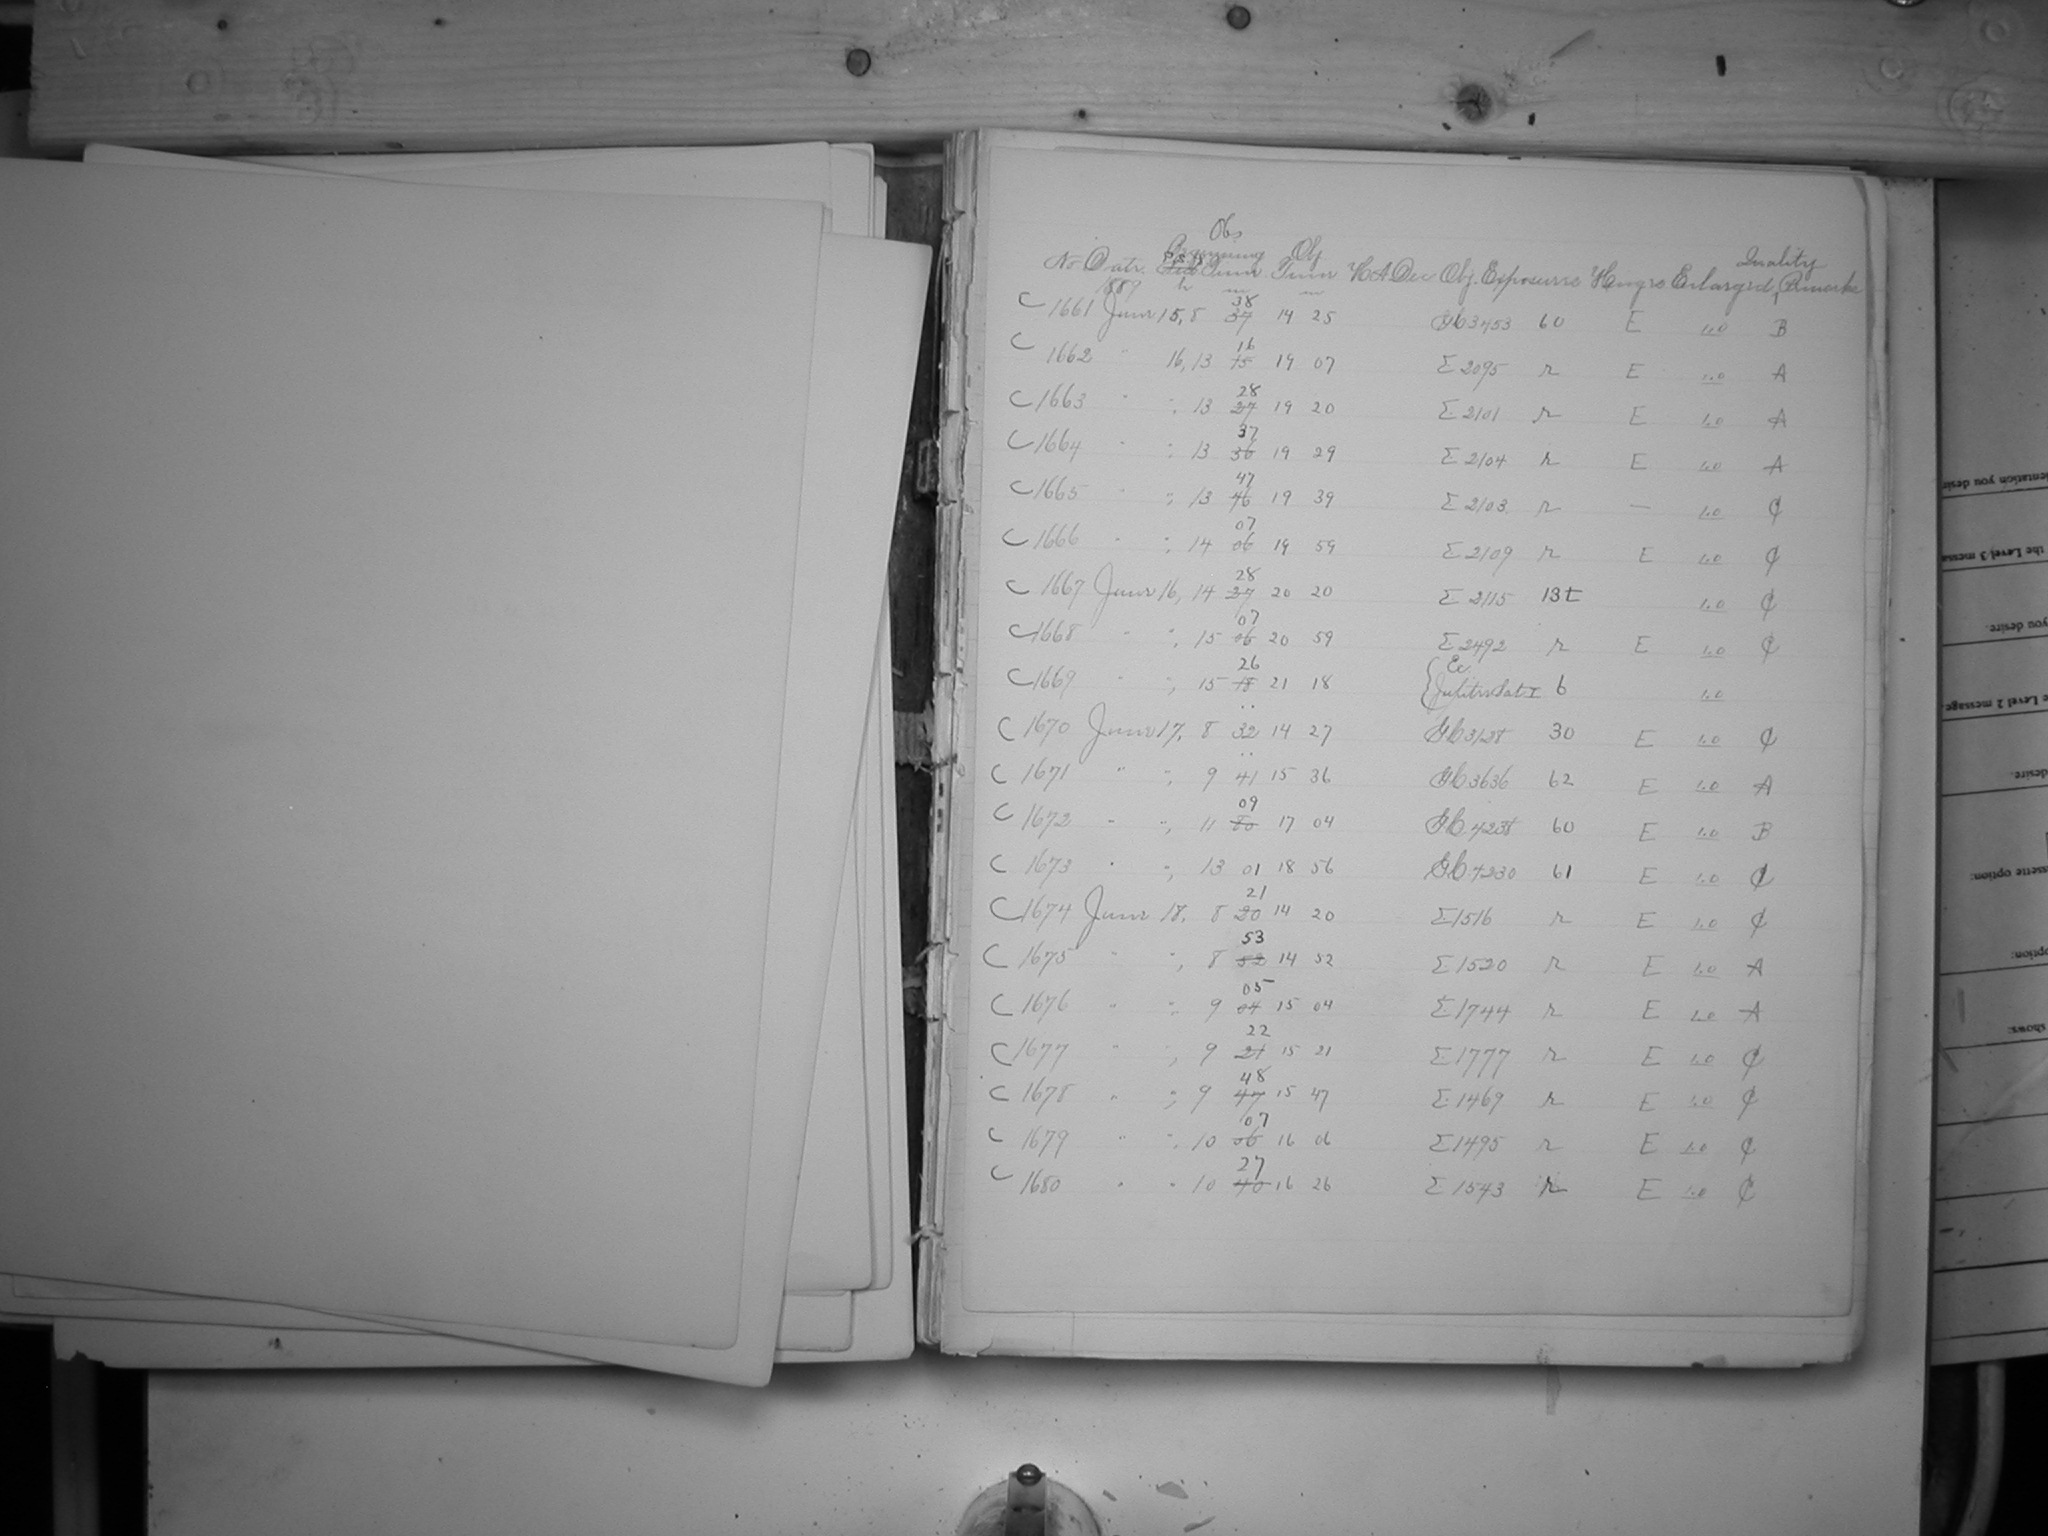 Obs
Beginning Obj Quality
No Date. P.S.D Time Time H A Dec Obj. Exposures Hemrs Enlarged, Remarks
1889 h m m
38
C 1661 June 15, 8 37 14 25 3453 60 E 1.0 B
16
C 1662 " 16, 13 15 19 07 Σ 2095 r E 1.0 A
28
C 1663 " ", 13 27 19 20 Σ 2101 r E 1.0 A
37
C 1664 " " 13 36 19 29 Σ 2104 r E 1.0 A
47
C 1665 " ", 13 46 19 39 Σ 2103 r — 1.0 C
07
C 1666 " ", 14 06 19 59 Σ 2109 r E 1.0 C
28
C 1667 June 16, 14 27 20 20 Σ 2115 13t 1.0 C
07
C 1668 " ", 15 06 20 59 Σ 2492 r E 1.0 C
26 Ec
C 1669 " ", 15 18 21 18 Jupiter Sat I 6 1.0
C 1670 June 17, 8 32 14 27 3128 30 E 1.0 C
C 1671 " ", 9 41 15 36 3636 62 E 1.0 A
09
C 1672 " ", 11 17 04 4238 60 E 1.0 B
C 1673 " ", 13 01 18 56 4230 61 E 1.0 C
21
C 1674 June 18, 8 20 14 20 Σ 1516 r E 1.0 C
53
C 1675 " ", 8 52 14 52 Σ 1520 r E 1.0 A
05
C 1676 " " 9 04 15 04 Σ 1744 r E 1.0 A
22
C 1677 " ", 9 21 15 21 Σ 1777 r E 1.0 C
48
C 1678 " ", 9 47 15 47 Σ 1469 r E 1.0 C
07
C 1679 " ", 10 06 16 06 Σ 1495 r E 1.0 C
27
C 1680 " " 10 40 16 26 Σ 1543 r E 1.0 C
entation you desir
the Level 3 messa
you desire.
e Level 2 message.
desire.
ssette option:
option:
shows: